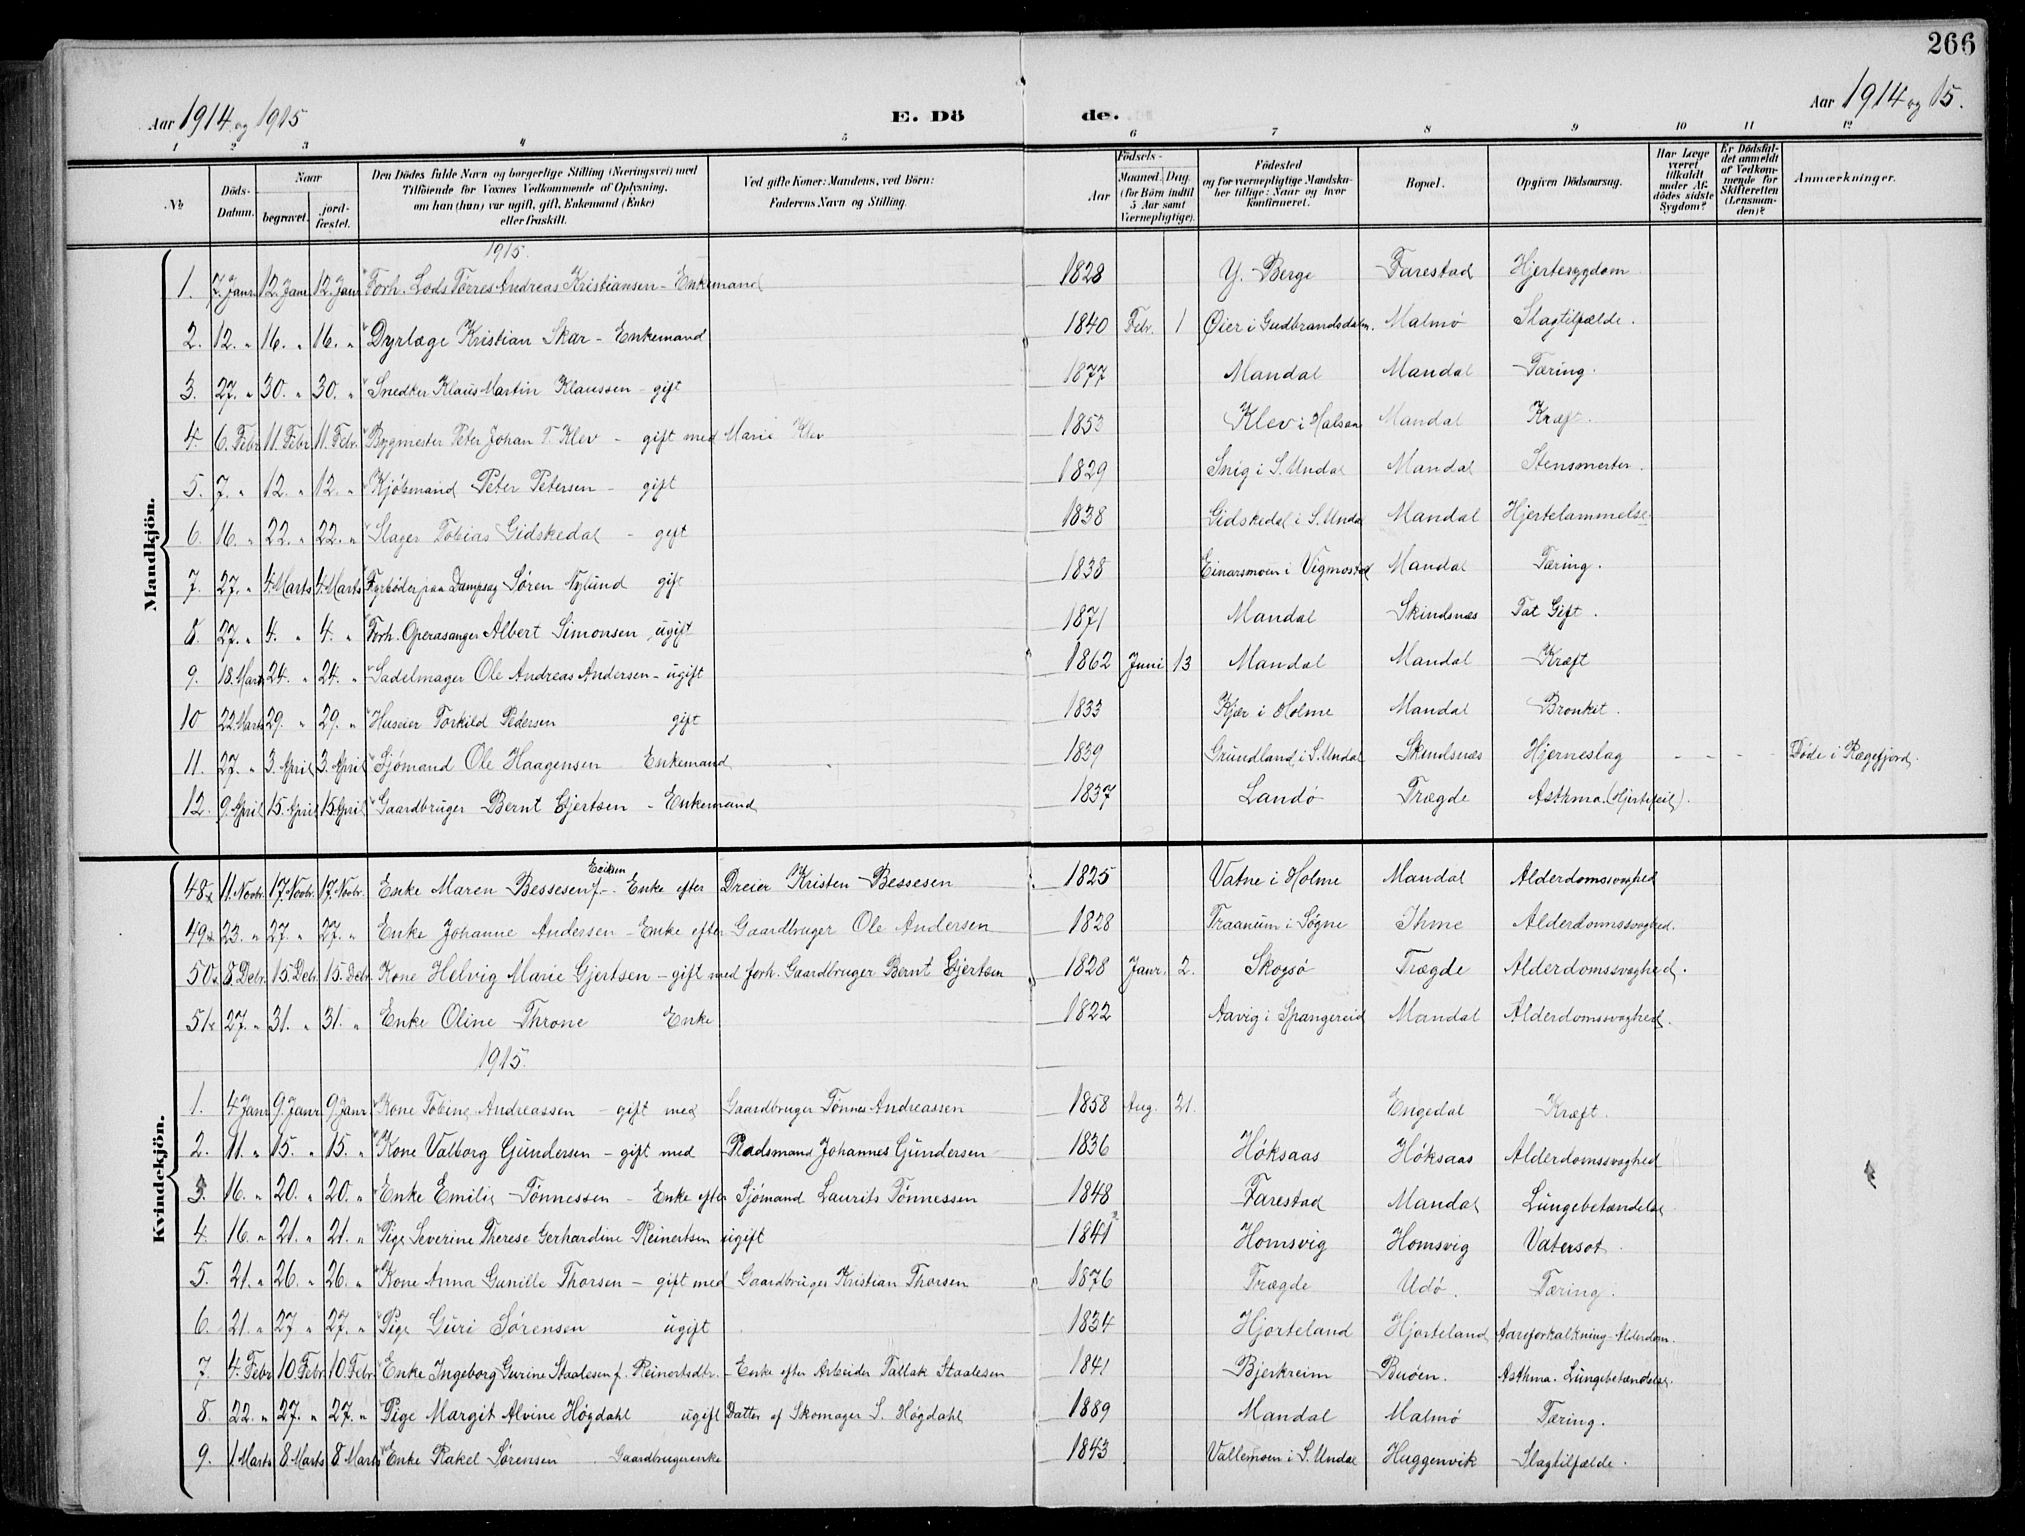 266
Aar 1914 og 1915 E. Dö de. Aar 1914 og 15.
1 2 3 4 5 6 7 8 9 10 11 12
No Döds-Datum. Naar begravet. jordfæstet. Den Dödes fulde Navn og borgerlige Stilling (Næringsvei) med Tilföiende for Voxnes Vedkommende af Oplysning, om han (hun) var ugift, gift, Enkemand (Enke) eller fraskilt. Ved gifte Koner: Mandens, ved Börn: Faderens Navn og Stilling. Födsels- Aar Maaned. Dag. (for Börn indtil 5 Aar samt Værnepligtige). Födested og for værnepligtige Mandskaber tillige: Naar og hvor konfirmeret. Bopæl. Opgiven Dödsaarsag. Har Læge været tilkaldt under Afdödes sidste Sygdom? Er Dödsfaldet anmeldt af Vedkommende for Skifteretten (Lensmanden)? Anmærkninger.
Mandkjön.
1915.
1. 7. Janr 12. Janr 12. Janr Forh. Lods Tørres Andreas Kristiansen - Enkemand 1828 Y. Berge Farestad Hjertesygdom
2. 12. " 16. " 16. " Dyrlæge Kristian Skar - Enkemand 1840 Febr. 1 Øier i Gudbrandsdalen. Malmø Slagtilfælde.
3. 27. " 30. " 30. " Snedker Klaus Martin Klaussen - gift 1877 Mandal Mandal Tæring.
4. 6. Febr 11. Febr 11. Febr. Bygmester Peter Johan T. Klev - gift med Marie Klev 1853 Klev i Halsaa Mandal Kræft.
5. 7. " 12. " 12. " Kjøbmand Peter Petersen - gift 1829 Snig i S. Undal Mandal Stensmerter.
6. 16. " 22. " 22. " Slager Tobias Gidskedal - gift 1838 Gidskedal i S. Undal Mandal Hjertelammelse
7. 27. " 4. Marts 4. Marts Fyrbøder paa Dampsag Søren Nylund gift 1838 Einarsmoen i Vigmostad Mandal Tæring.
8. 27. " 4. " 4. " Forh. Operasanger Albert Simonsen ugift 1871 Mandal Skindsnæs Tat Gift.
9. 18. Marts 24. " 24. " Sadelmager Ole Andreas Andersen - ugift 1862 Juni 13 Mandal Mandal Kræft
10 22. Marts 29. " 29. " Huseier Torkild Pedersen gift 1833 Kjær i Holme Mandal Bronket.
11. 27. " 3. April 3. April Sjømand Ole Haagensen Enkemand 1839 Grundland i S. Undal Skindsnæs Hjerneslag - - - Døde i Rægefjord.
12. 9. April 15. April 15. April Gaardbruger Bernt Gjertsen - Enkemand 1837 Landø Trægde Asthma. (Hjertefeil).
Kvindekjön.
48x 11. Novbr. 17. Novbr. 17. Novbr. Enke Maren Bessesen f. Eriksen - Enke efter Dreier Kristen Bessesen 1825 Vatne i Holme Mandal Alderdomssvaghed
49x 23. " 27. " 27. " Enke Johanne Andersen - Enke efter Gaardbruger Ole Andersen 1828 Traanum i Søgne Ihme Alderdomssvaghed.
50x 8. Debr. 15. Debr. 15. Debr. Kone Helvig Marie Gjertsen - gift med forh. Gaardbruger Bernt Gjertsen 1828 Janr. 2. Skogsø Trægde Alderdomssvaghed.
51x 27. " 31. " 31. " Enke Oline Throne Enke 1822 Aavig i Spangereid Mandal Alderdomssvaghed.
1915.
1. 4. Janr 9. Janr 9. Janr Kone Tobine Andreassen - gift med Gaardbruger Tønnes Andreassen 1858 Aug. 21. Engedal Kræft.
2. 11. " 15. " 15. " Kone Valborg Gundersen - gift med Rodsmand Johannes Gundersen 1836 Høksaas Høksaas Alderdomssvaghed
3. 16. " 20. " 20. " Enke Emilie Tønnessen - Enke efter Sjømand Laurits Tønnessen 1848 Farestad Mandal Lungebetændelse
4. 16. " 21. " 21. " Pige Severine Therese Gerhardine Reinertsen ugift 1841 Homsvig Homsvig Vatersot.
5. 21. " 26. " 26. " Kone Anna Gunille Thorsen - gift med Gaardbruger Kristian Thorsen 1876 Trægde Udø. Tæring.
6. 21. " 27 " 27. " Pige Guri Sørensen ugift 1834 Hjorteland Hjorteland Aareforkalkning - Alderdom.
7. 4. Febr 10. Febr 10. Febr. Enke Ingeborg Gurine Staalesen f. Reinertsdtr. - Enke efter Arbeider Tallak Staalesen 1841 Bjerkreim Buøen. Asthma. Lungebetændelse.
8. 22. " 27. " 27. " Pige Margit Alvine Høgdahl ugift Datter af Skomager S. Høgdahl 1889 Mandal Malmø Tæring.
9. 1. Marts 8. Marts 8. Marts Enke Rakel Sørensen Gaardbrugerenke 1843 Vallemoen i S. Undal Huggenvik Slagtilfælde.